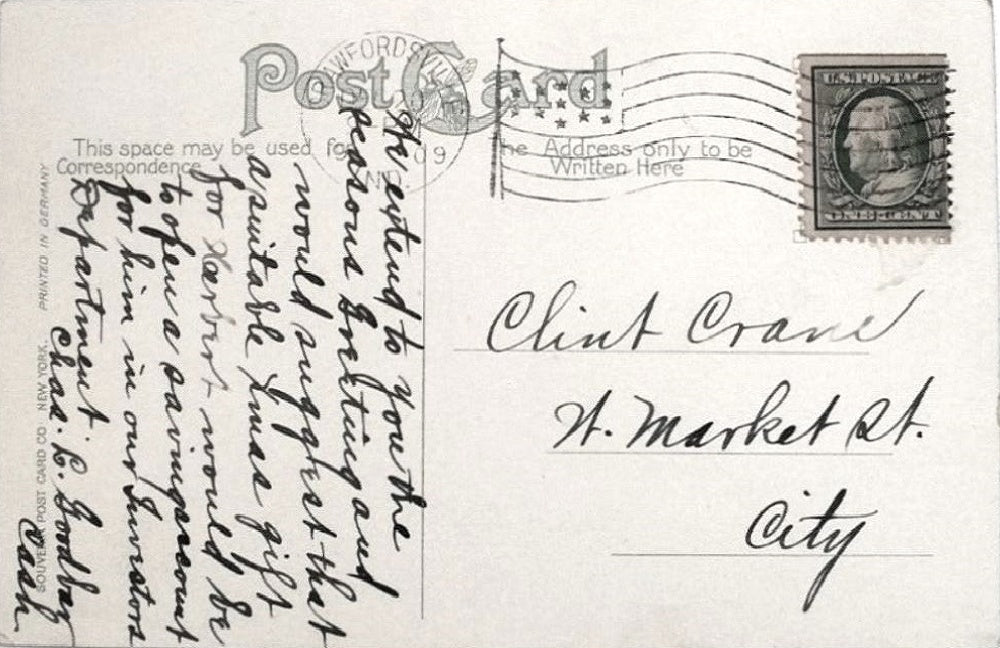 Post Card
This space may be used for
Correspondence
The Address only to be
Written Here
CRAWFORDSVILLE
09
U.S. POSTAGE
ONE CENT
We extend to you the
seasons Greeting and
would suggest that
a suitable Xmas gift
for would be
to open a savings account
for him in our Investors
Department.
Chas. L. Goodbar
Cash.
Clint Crane
W. Market St.
City
SOUVENIR POST CARD CO. NEW YORK. PRINTED IN GERMANY